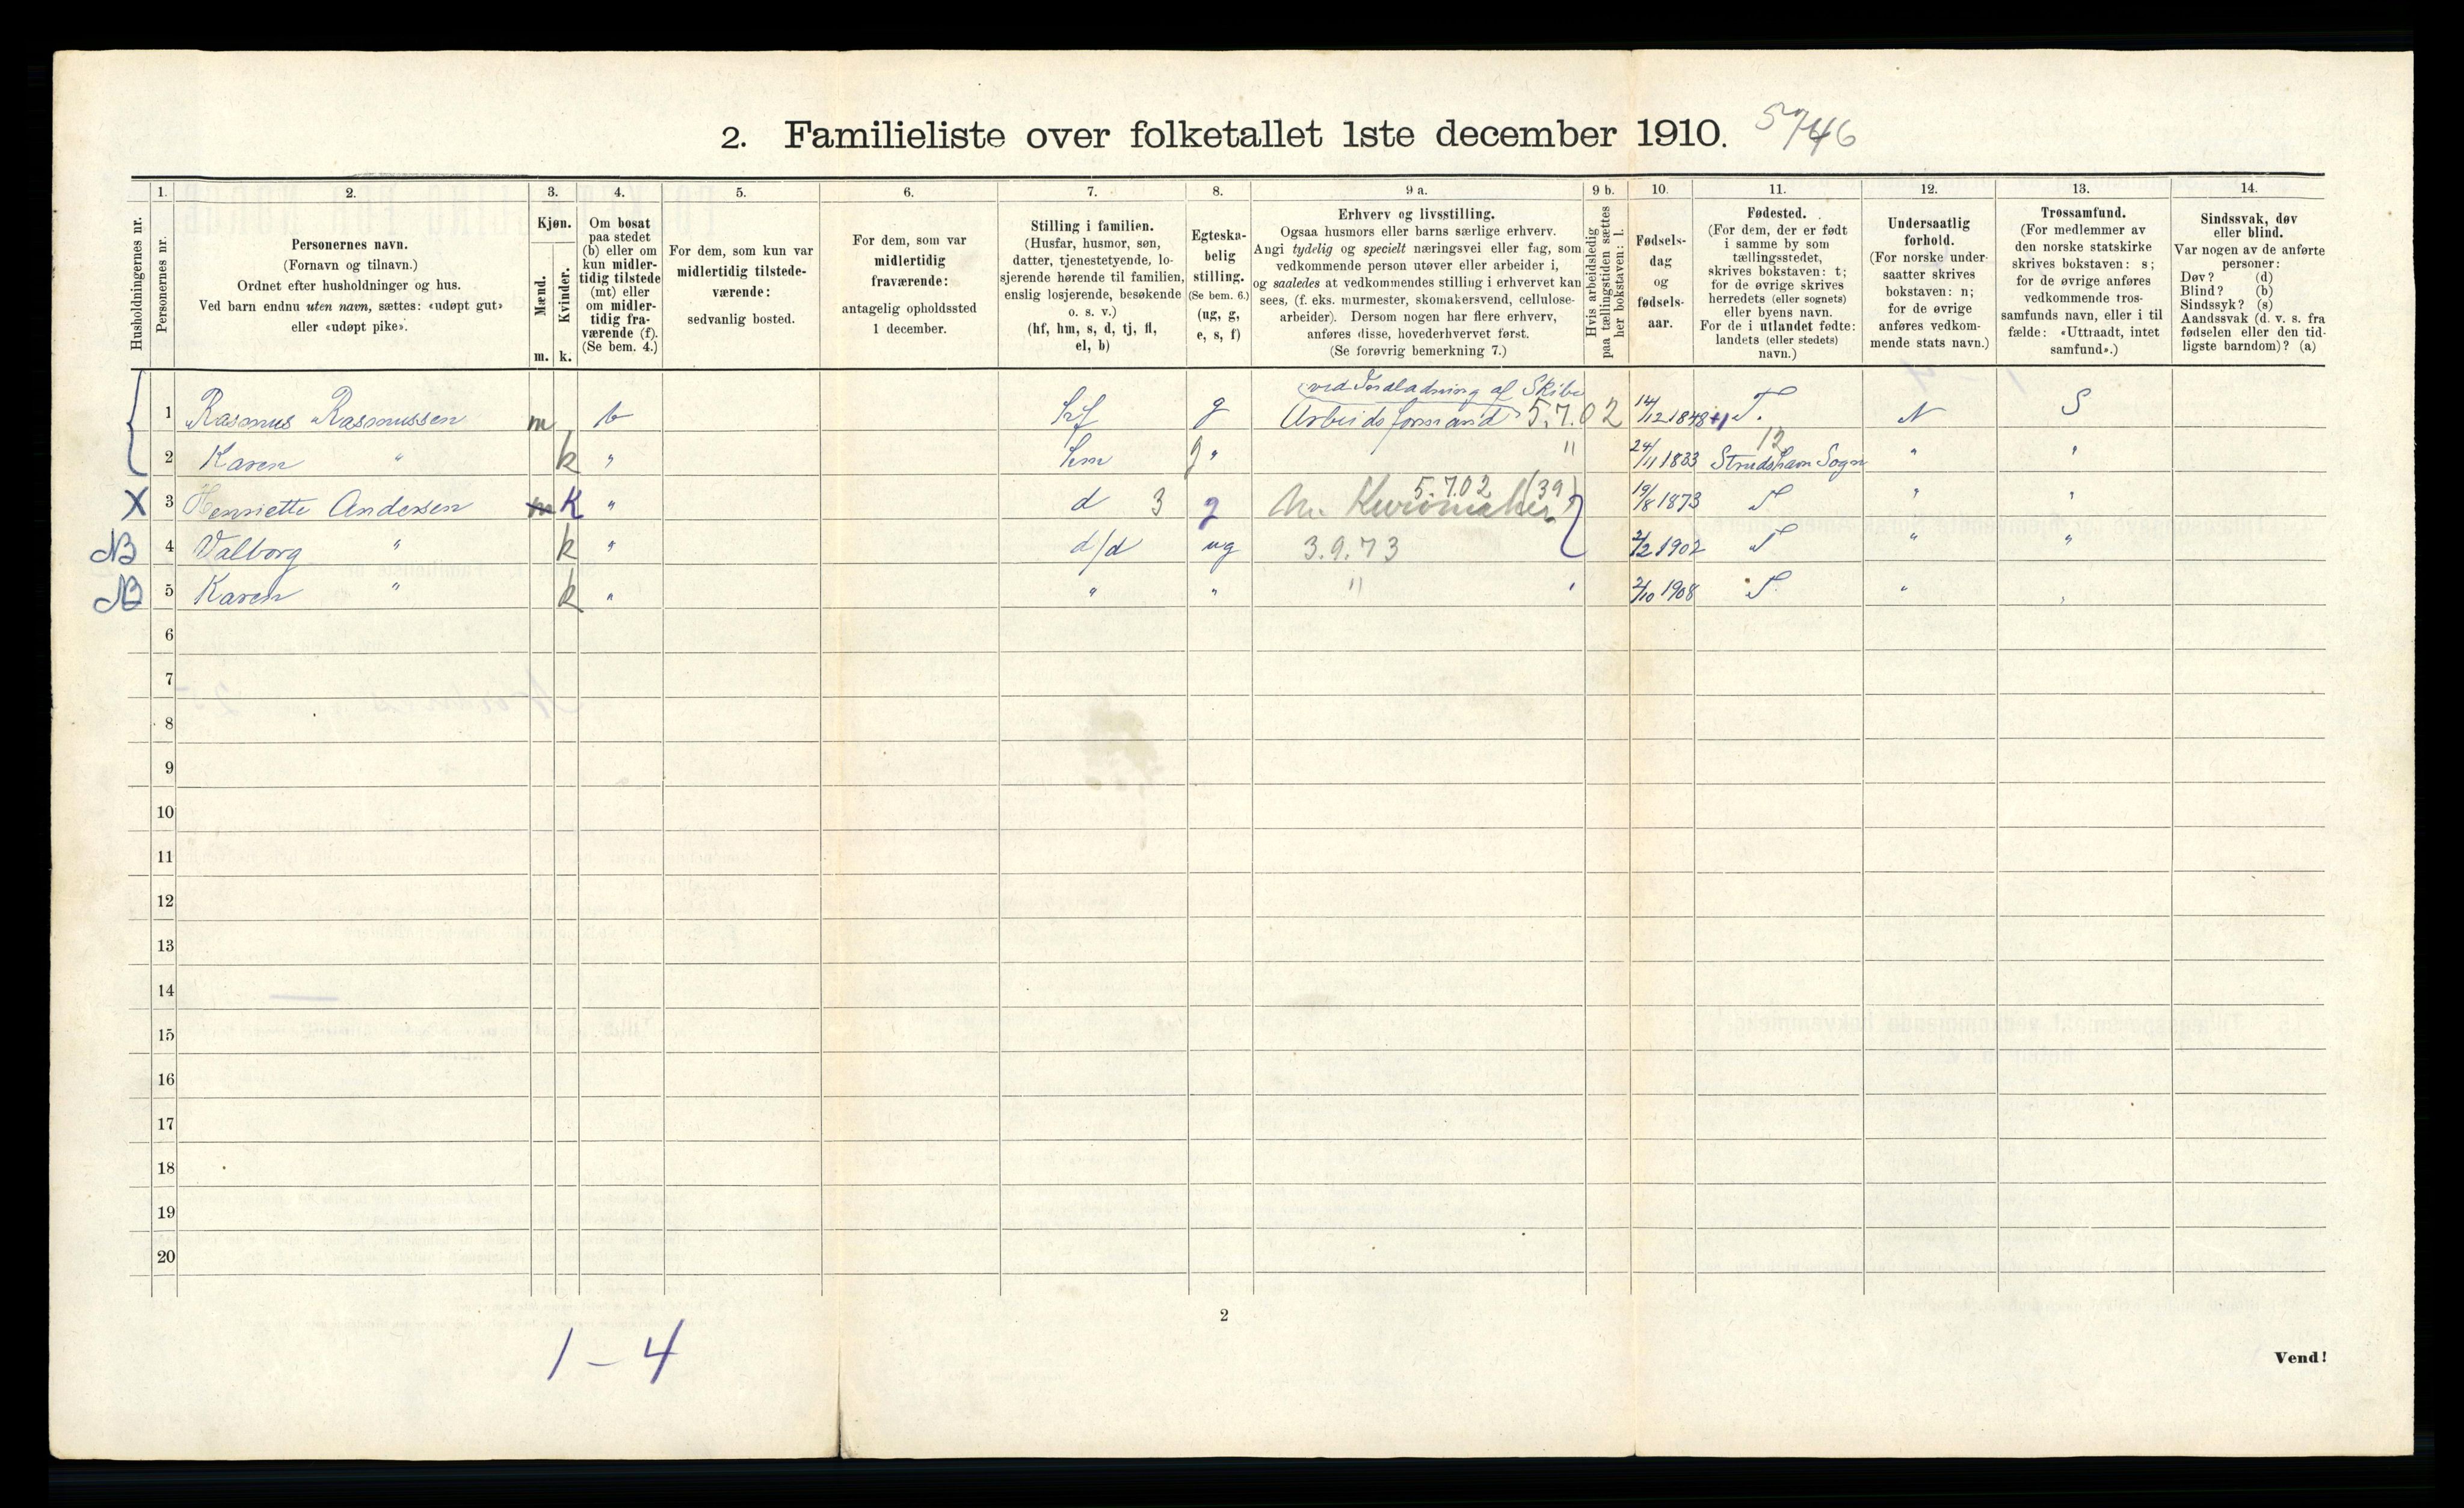 2. Familieliste over folketallet 1ste december 1910. 5746
Husholdningernes nr.
1.
Personernes nr.
2.
Personernes navn.
(Fornavn og tilnavn.)
Ordnet efter husholdninger og hus.
Ved barn endnu uten navn, sættes: «udøpt gut»
eller «udøpt pike».
3.
Kjøn.
Mænd.
Kvinder.
m. k.
4.
Om bosat
paa stedet
(b) eller om
kun midler-
tidig tilstede
(mt) eller
om midler-
tidig fra-
værende (f).
(Se bem. 4.)
5.
For dem, som kun var
midlertidig tilstede-
værende:
sedvanlig bosted.
6.
For dem, som var
midlertidig
fraværende:
antagelig opholdssted
1 december.
7.
Stilling i familien.
(Husfar, husmor, søn,
datter, tjenestetyende, lo-
sjerende hørende til familien,
enslig losjerende, besøkende
o. s. v.)
(hf, hm, s, d, tj, fl,
el, b)
8.
Egteska-
belig
stilling.
(Se bem. 6.)
(ug, g,
e, s, f)
9 a.
Erhverv og livsstilling.
Ogsaa husmors eller barns særlige erhverv.
Angi tydelig og specielt næringsvei eller fag, som
vedkommende person utøver eller arbeider i,
og saaledes at vedkommendes stilling i erhvervet kan
sees, (f. eks. murmester, skomakersvend, cellulose-
arbeider). Dersom nogen har flere erhverv,
anføres disse, hovederhvervet først.
(Se forøvrig bemerkning 7.)
9 b.
Hvis arbeidsledig
paa tællingstiden sættes
her bokstaven: l.
10.
Fødsels-
dag
og
fødsels-
aar.
11.
Fødested.
(For dem, der er født
i samme by som
tællingsstedet,
skrives bokstaven: t;
for de øvrige skrives
herredets (eller sognets)
eller byens navn.
For de i utlandet fødte:
landets (eller stedets)
navn.)
12.
Undersaatlig
forhold.
(For norske under-
saatter skrives
bokstaven: n;
for de øvrige
anføres vedkom-
mende stats navn.)
13.
Trossamfund.
(For medlemmer av
den norske statskirke
skrives bokstaven: s;
for de øvrige anføres
vedkommende tros-
samfunds navn, eller i til
fælde: «Uttraadt, intet
samfund».)
14.
Sindssvak, døv
eller blind.
Var nogen av de anførte
personer:
Døv? (d)
Blind? (b)
Sindssyk? (s)
Aandssvak (d. v. s. fra
fødselen eller den tid-
ligste barndom)? (a)
ved Indladning af Skibe
1 Rasmus Rasmussen m b hf g Arbeidsformand 5.7.02 14/12 1848 T. N S
12
2 Karen " k " hm g " " 24/11 1833 Sogn " "
5.702 (39)
X 3 Henriette Andersen m K " d 3 g 19/8 1873 T " "
NB 4 Valborg " k " d/d ug 3.9.73 2/2 1902 T " "
NB 5 Karen " k " " " " " 2/10 1908 T. " "
6
7
8
9
10
11
12
13
14
15
16
17
18
19
20
2
1 - 4
Vend!